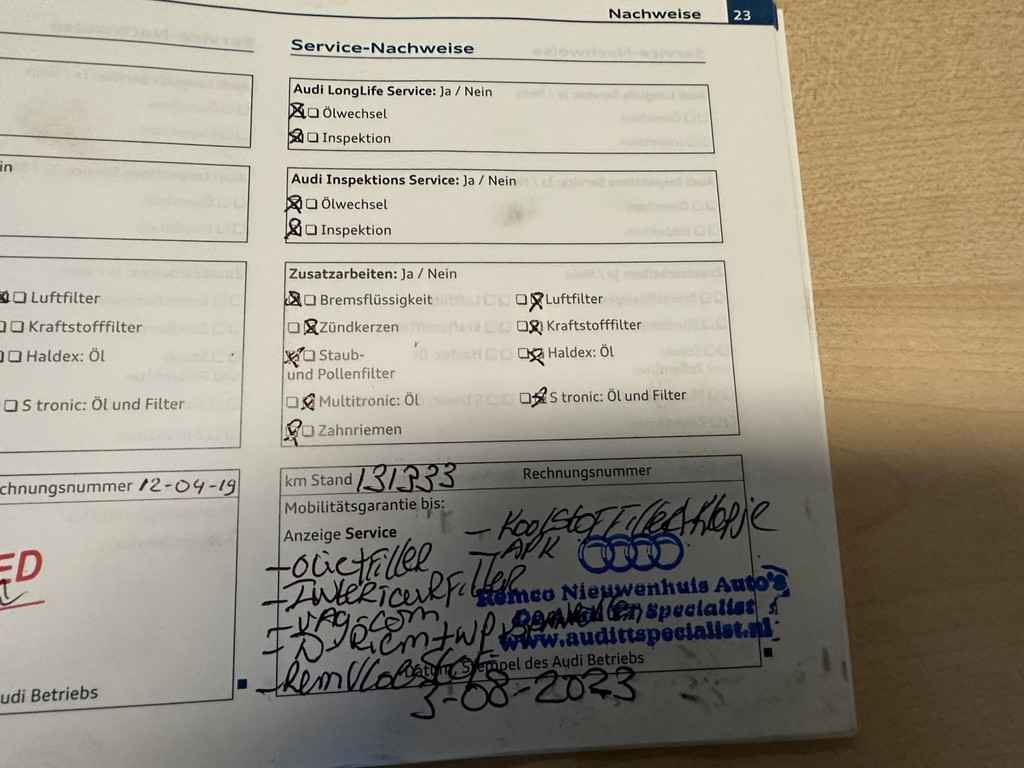 Nachweise 23
Service-Nachweise
Audi LongLife Service: Ja / Nein
Ölwechsel
Inspektion
in
Audi Inspektions Service: Ja / Nein
Ölwechsel
Inspektion
Luftfilter
Kraftstofffilter
Haldex: Öl
S tronic: Öl und Filter
Zusatzarbeiten: Ja / Nein
Bremsflüssigkeit
Luftfilter
Zündkerzen
Kraftstofffilter
Staub-
und Pollenfilter
Haldex: Öl
Multitronic: Öl
S tronic: Öl und Filter
Zahnriemen
chnungsnummer 12-04-19
ED
udi Betriebs
km Stand 131333
Rechnungsnummer
Mobilitätsgarantie bis:
Anzeige Service
- APK
Remco Nieuwenhuis Auto's
Specialist
www.audittspecialist.nl
Stempel des Audi Betriebs
3-08-2023